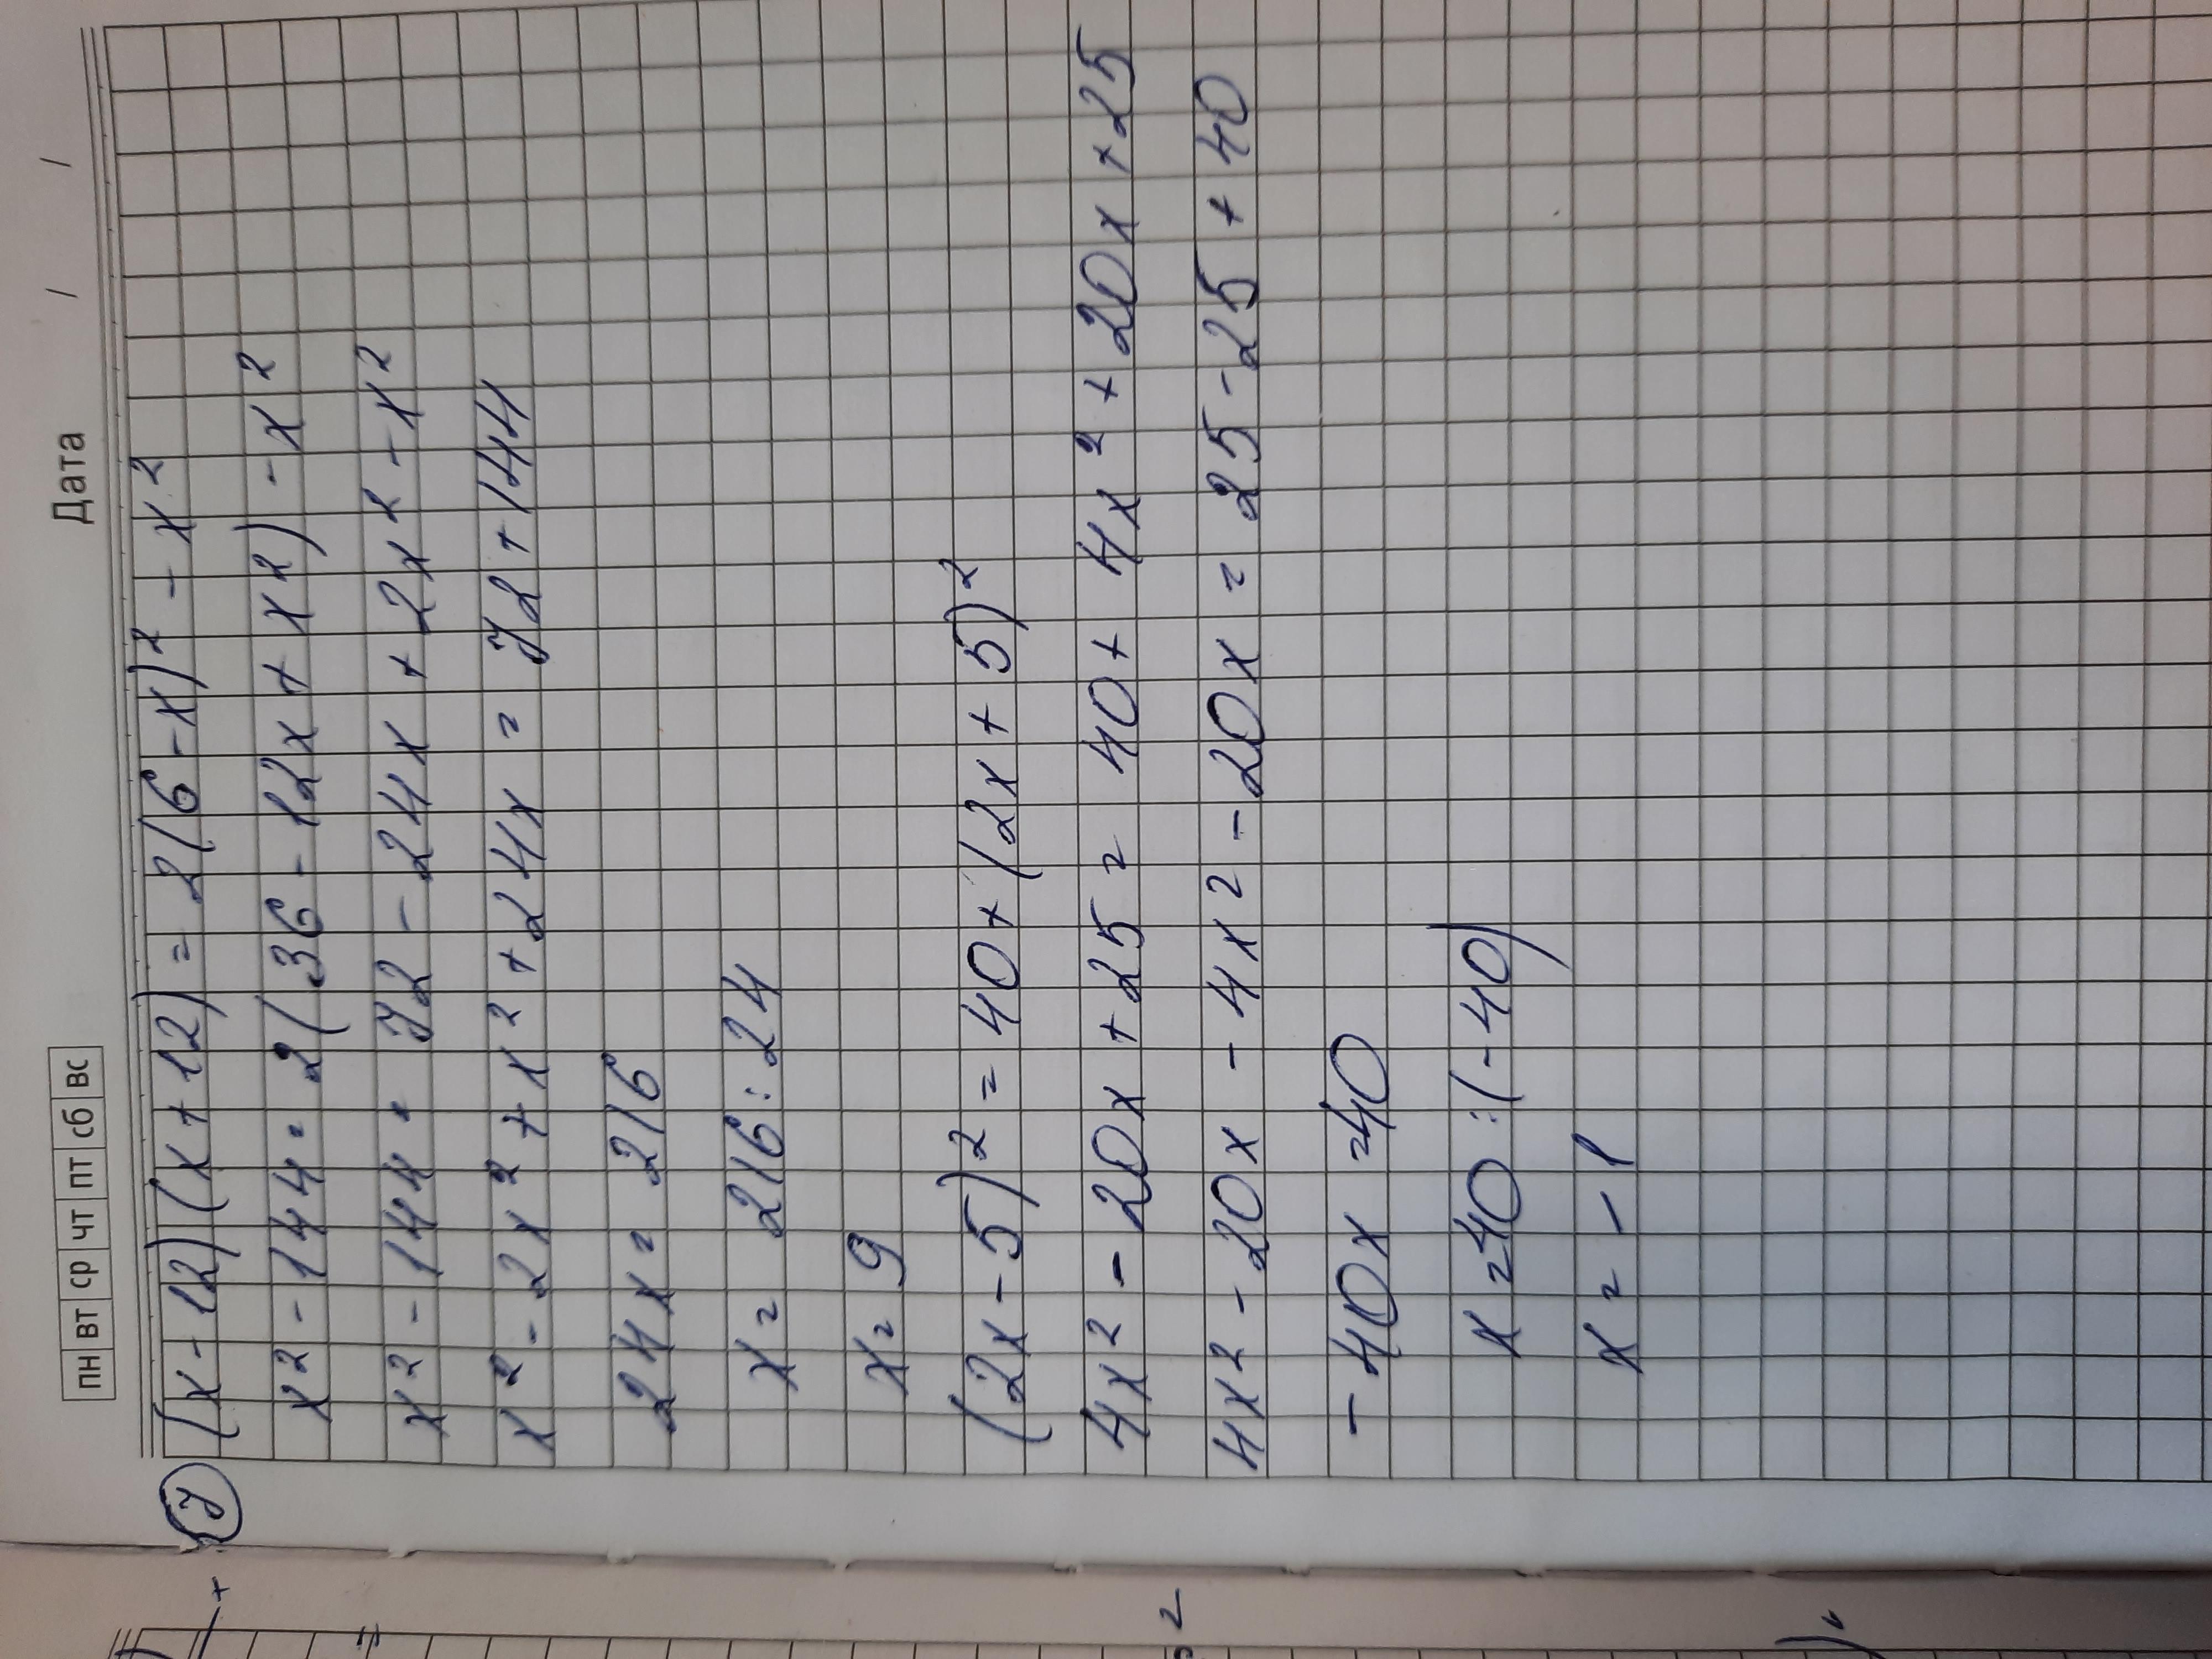 пн вт ср чт пт сб вс Дата / /
7 (x-12)(x+12) = 2(6-x)² - x²
x² - 144 = 2(36 - 12x + x²) - x²
x² - 144 = 72 - 24x + 2x² - x²
x² - 2x² + x² + 24x = 72 + 144
24x = 216
x = 216 : 24
x = 9
(2x - 5)² = 40 + (2x + 5)²
4x² - 20x + 25 = 40 + 4x² + 20x + 25
4x² - 20x - 4x² - 20x = 25 - 25 + 40
- 40x = 40
x = 40 : (-40)
x = - 1